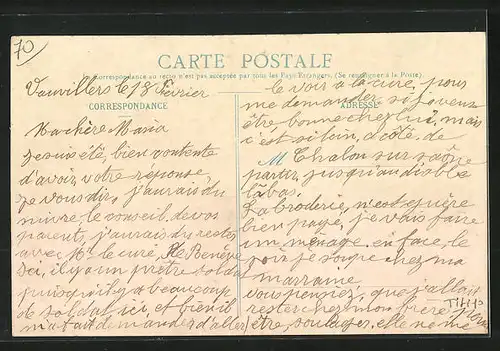 70
CARTE POSTALE
La Correspondance au recto n'est pas acceptée par tous les Pays Étrangers. (Se renseigner à la Poste).
CORRESPONDANCE
ADRESSE
Vauvillers le 18 Fevrier
Ma chère Maria
Je suis été bien contente
d'avoir votre reponse,
je vous dis, j'aurais du
suivre le conseil de vos
parents, j'aurais du rester
avec Mr le curé,
Ici, il y a un prêtre soldat
puisqu'il y a beaucoup
de soldat ici, et bien il
m'a fait demander d'aller
le voir a la cure, pour
me demander si je veux
être bonne chez lui, mais
c'est si loin, a côté de
Chalon sur Saône
partir jusqu'au diable
labas.
La broderie, n'est guère
bien payé, je vais faire
un ménage en face, le
soir je soupe chez ma
marraine
vous pensiez, que j'allait
rester chez mon frère
être soulager, elle ne me